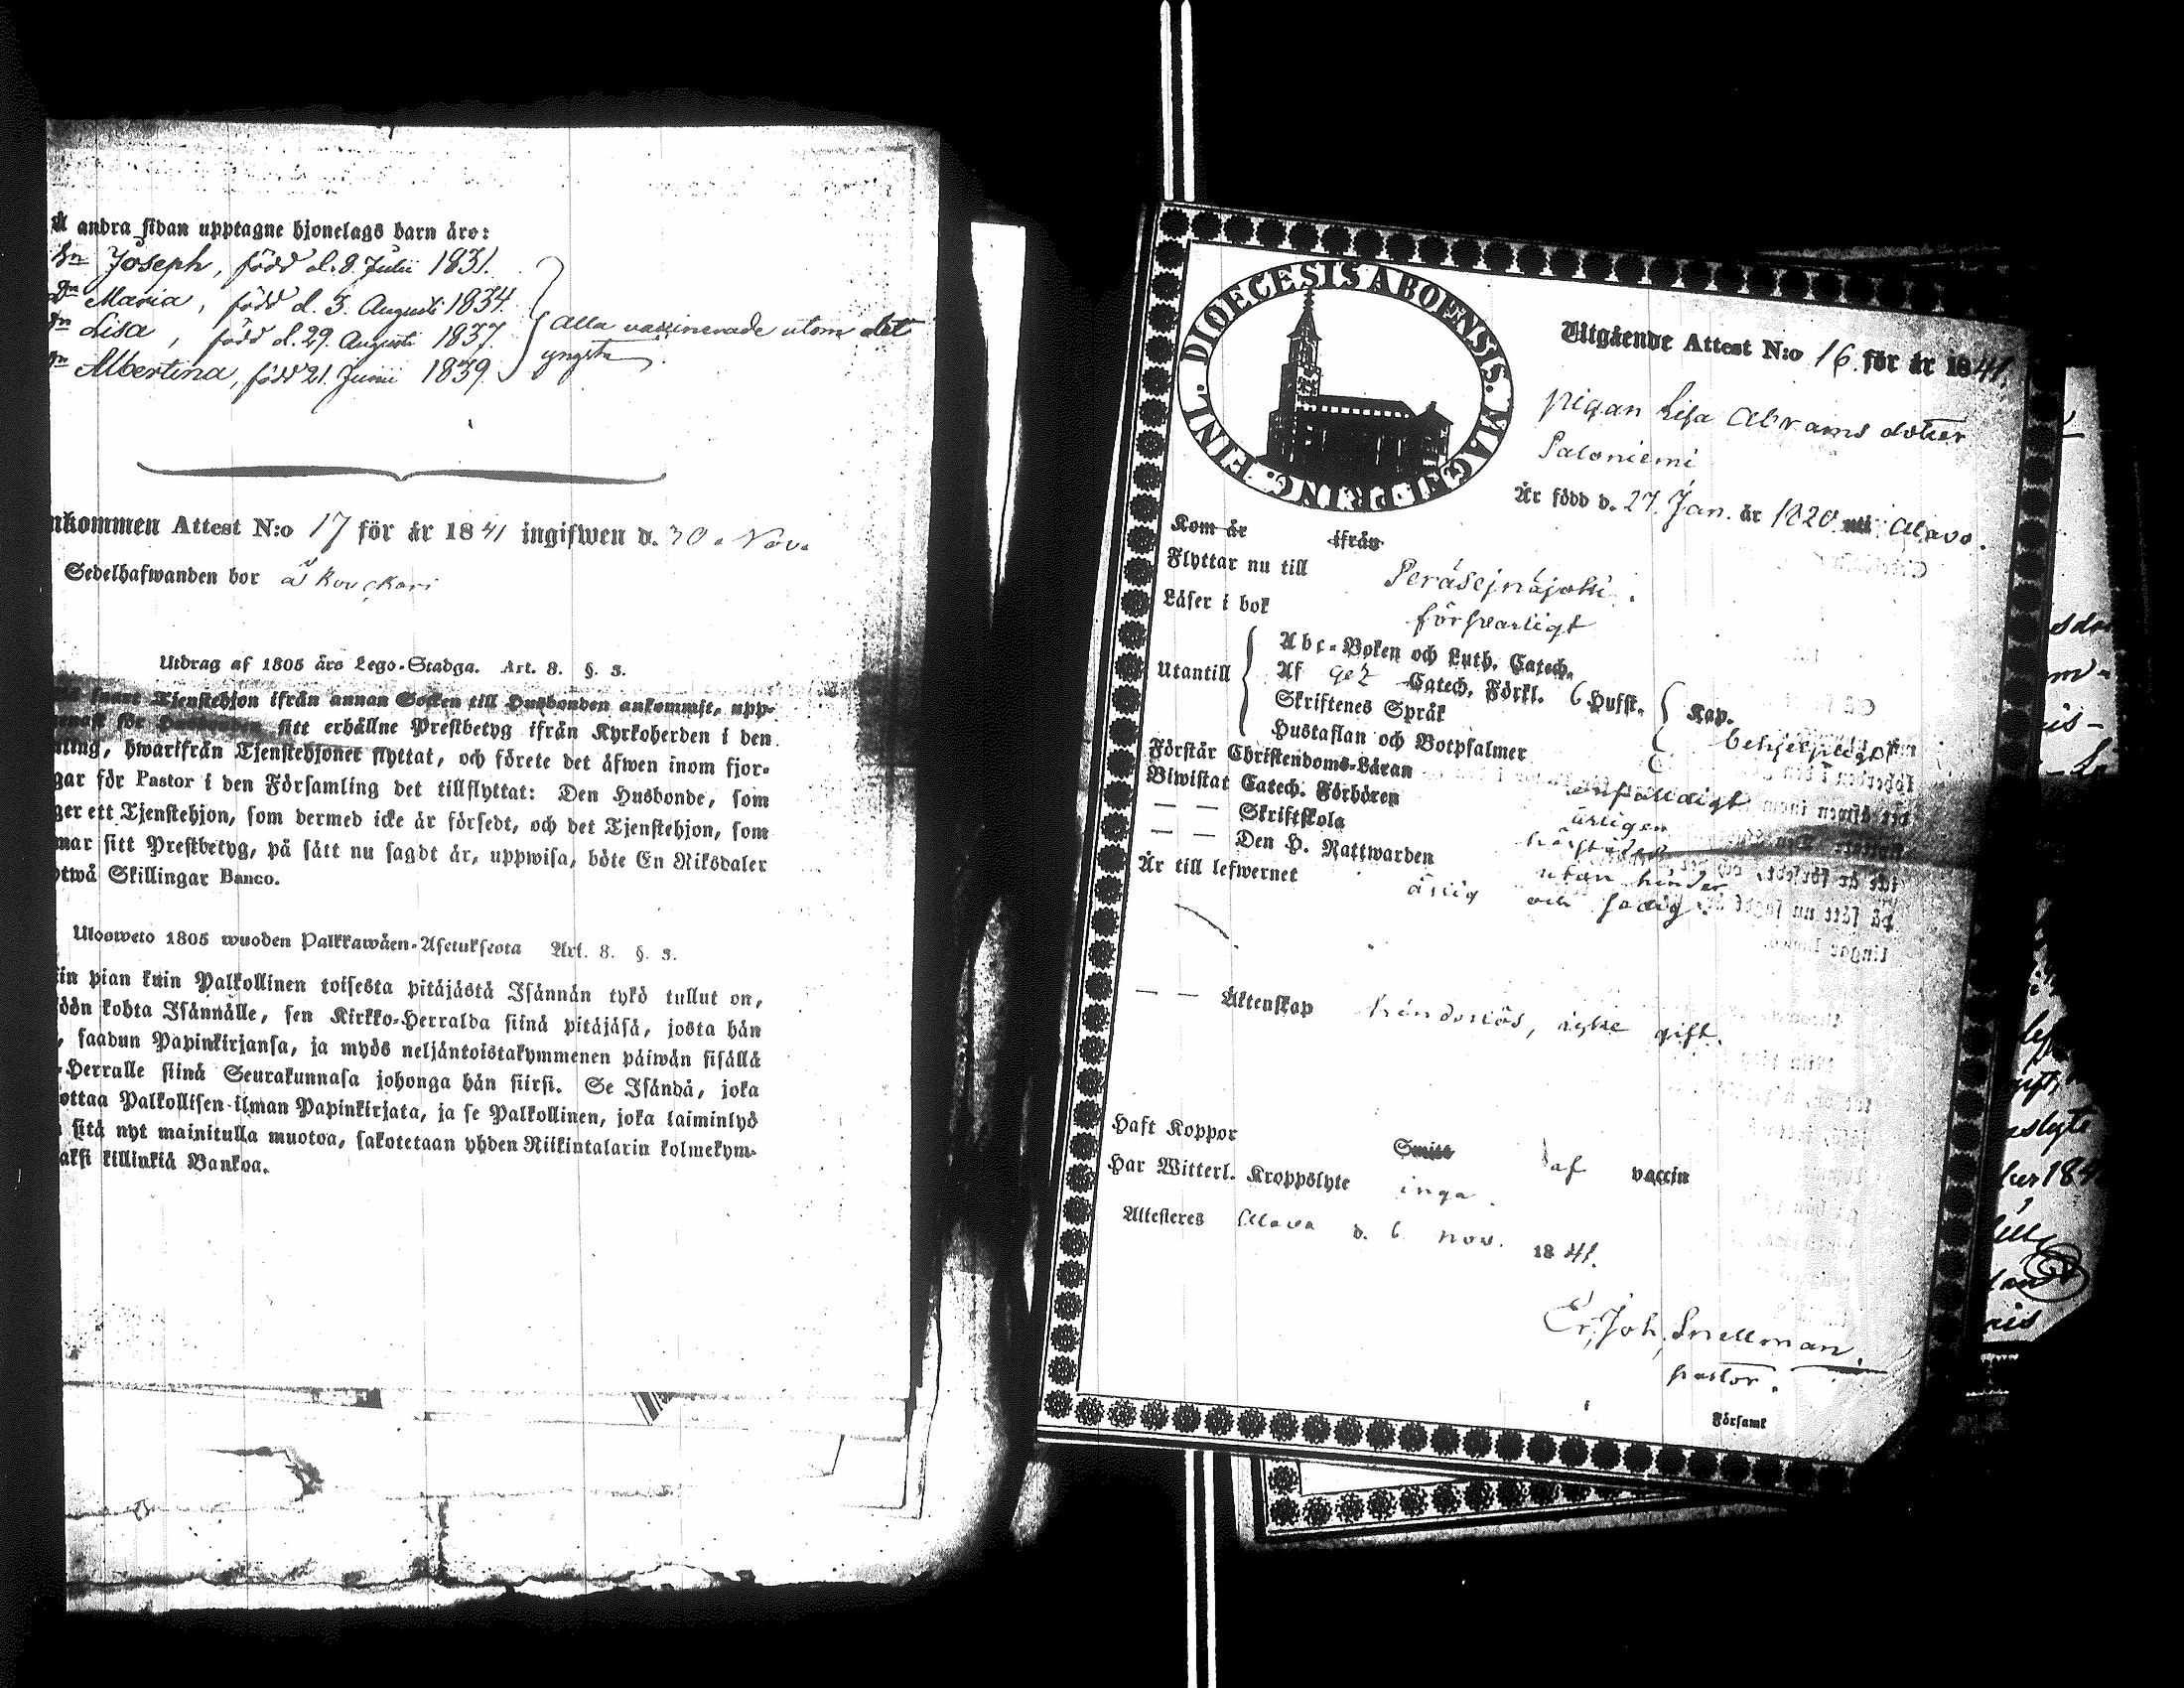 Å andra sidan upptagne hjonelags barn äro:
Sn Joseph, född d. 8. Julii 1831.
Dn Maria, född d. 3. Augusti 1834.
Dn Lisa, född d. 29. Augusti 1837.
Dn Albertina, född 21. Junii 1839.
alla vaccinerade utom det
yngsta
nkommen Attest N:o 17 för år 1841 ingifwen d. 30. Nov.
Sedelhafwanden bor å
Utdrag af 1805 års Lego-Stadga. Art. 8. §. 3.
snart Tjenstehjon ifrån annan Socken till Husbonden ankommit, upp-
för Husbonden sitt erhållne Prestbetyg ifrån Kyrkoherden i den
ling, hwarifrån Tjenstehjonet flyttat, och förete det äfwen inom fjor-
gar för Pastor i den Församling det tillflyttat: Den Husbonde, som
ger ett Tjenstehjon, som dermed icke är försedt, och det Tjenstehjon, som
mar sitt Prestbetyg, på sätt nu sagdt är, uppwisa, böte En Riksdaler
twå Skillingar Banco.
Ulosweto 1805 wuoden Palkkawäen-Asetuksesta Art. 8. §. 3.
in pian kuin Palkollinen toisesta pitäjästä Isännän tykö tullut on,
kohta Isännälle, sen Kirkko-Herralda siinä pitäjäsä, josta hän
, saadun Papinkirjansa, ja myös neljäntoistakymmenen päiwän sisällä
-Herralle siinä Seurakunnasa johonga hän siirsi. Se Isändä, joka
ottaa Palkollisen ilman Papinkirjata, ja se Palkollinen, joka laiminlyö
sitä nyt mainitulla muotoa, sakotetaan yhden Riikintalarin kolmekym-
aksi killinkiä Bankoa.
DIOECESIS ABOENSIS. MAG. PRING. FINL.
Utgående Attest N:o 16 för år 1841.
pigan Lisa Abrams dotter
Saloniemi
Är född d. 27. Jan. år 1820 uti Alavo.
Kom år ifrån
Flyttar nu till Peräsejnäjoki.
Läser i bok försvarligt
Utantill
Abc-Boken och Luth. Catech.
Af Catech. Förkl. 6 Hufst. Kap.
Skriftenes Språk
Hustaflan och Botpsalmer
behjelpligen
Förstår Christendoms-Läran enfaldigt
Biwistat Catech. Förhören årligen
— — Skriftskola härstädes
— — Den H. Nattwarden utan hinder
Är till lefwernet ärlig och
— — Äktenskap hinderlös, icke gift.
Haft Koppor Smitt af vaccin
Har Witterl. Kroppslyte inga.
Attesteres Alavo d. 6 nov. 1841.
Er. Joh. Snellman.
pastor.
Församl